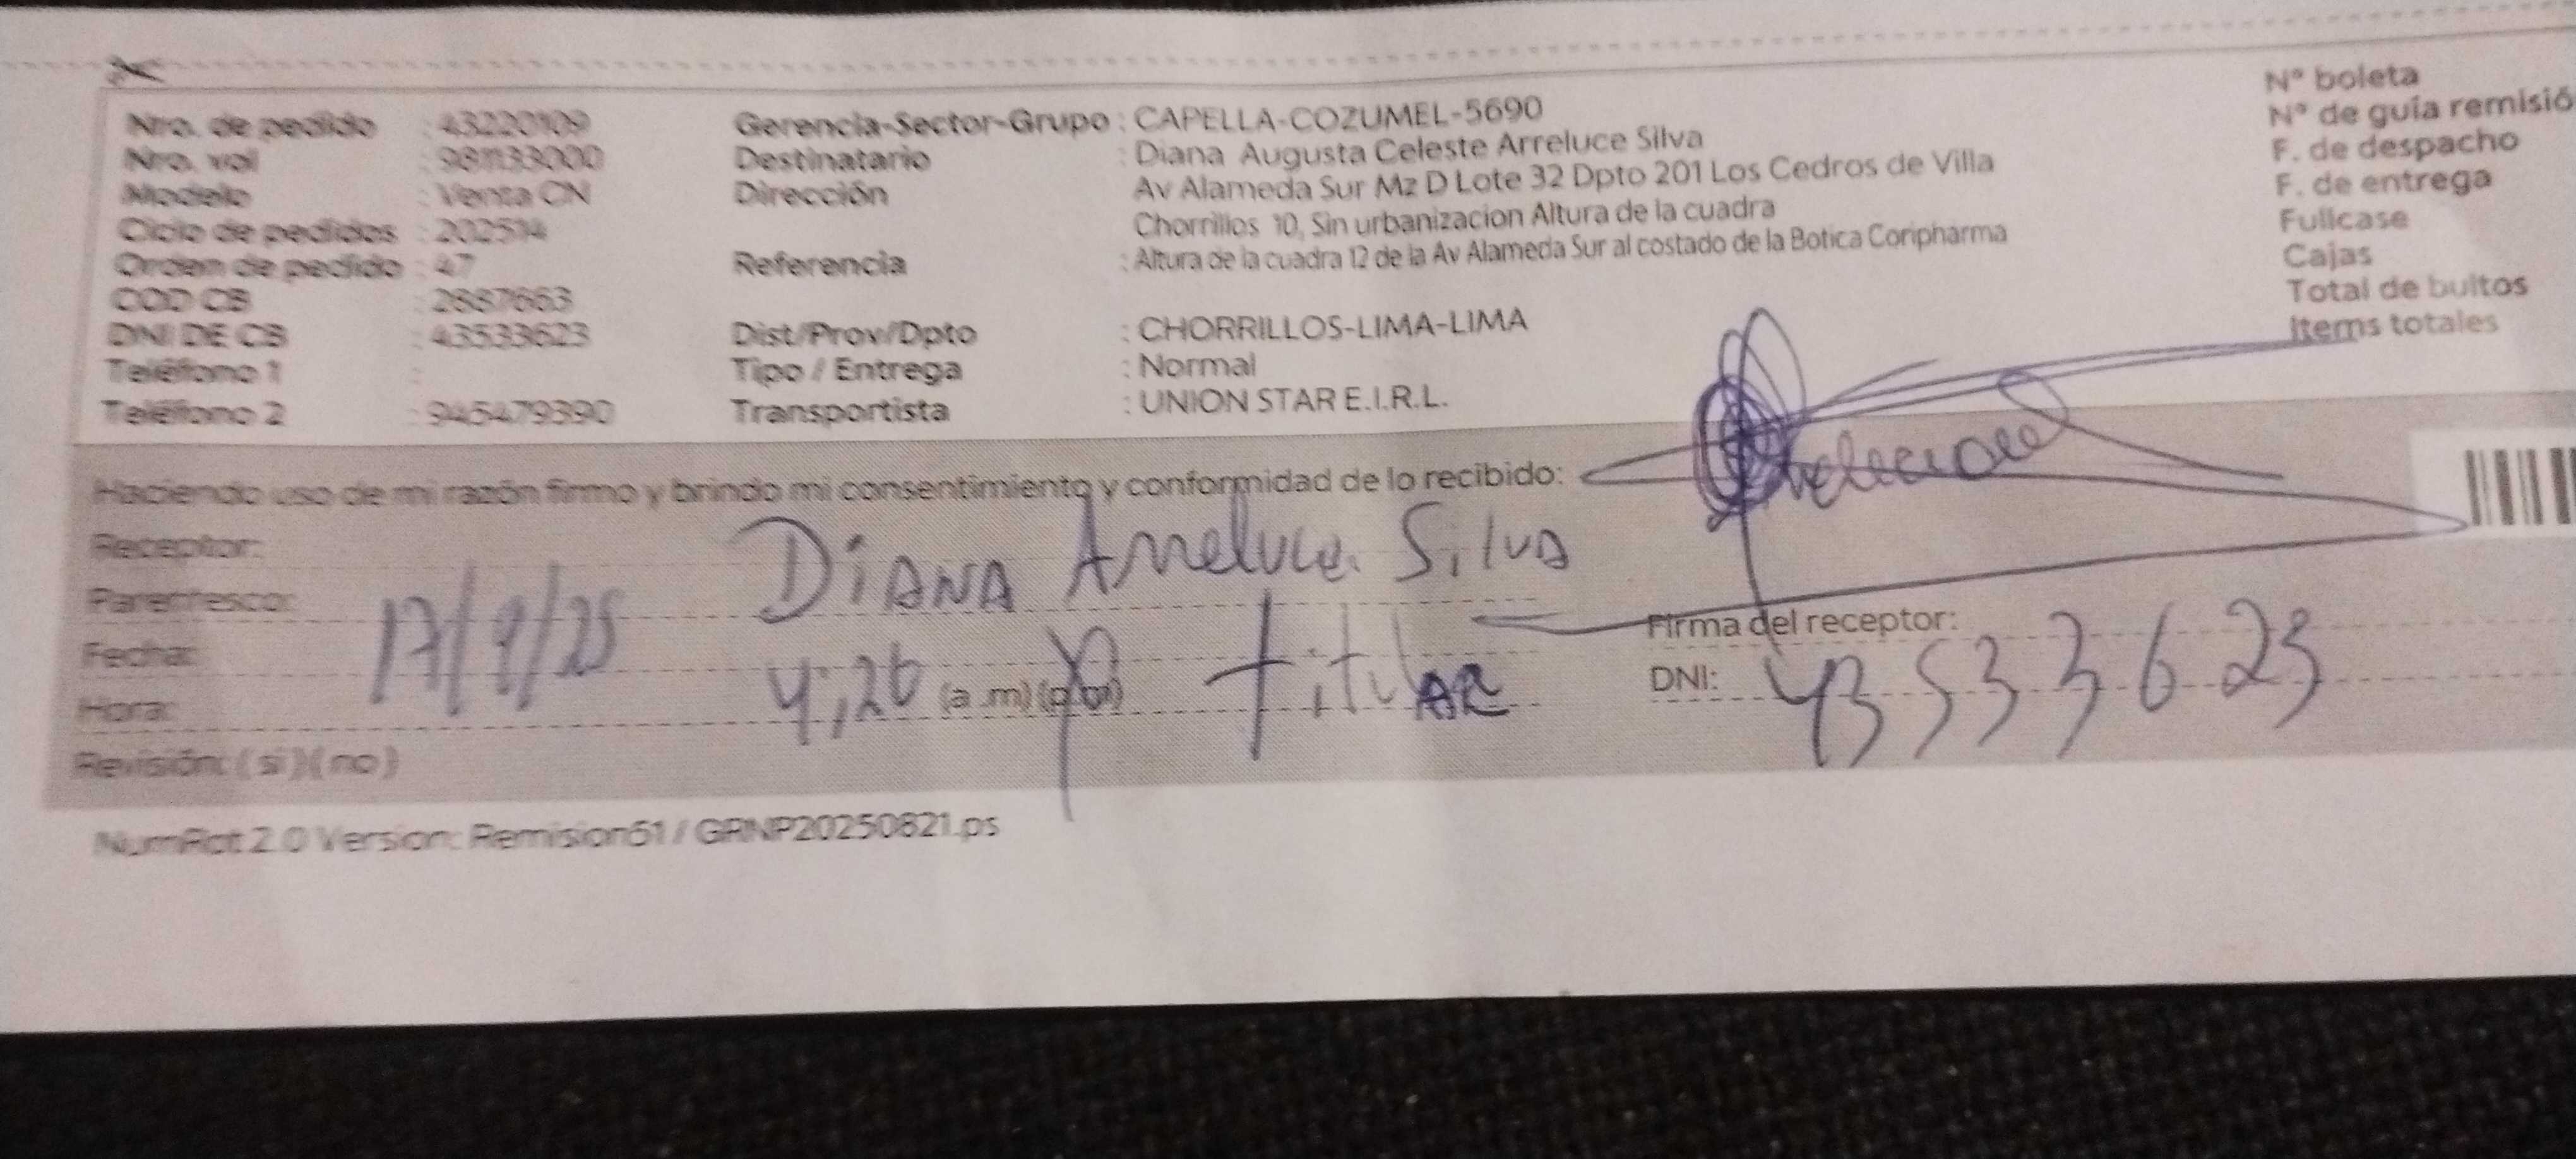 Nro. de pedido : 43220109
Nro. val : 981133000
Modelo : Venta CN
Ciclo de pedidos : 202514
Orden de pedido : 47
COD CB : 2887663
DNI DE CB : 43533623
Teléfono 1 :
Teléfono 2 : 945479390
Gerencia-Sector-Grupo : CAPELLA-COZUMEL-5690
Destinatario : Diana Augusta Celeste Arreluce Silva
Dirección Av Alameda Sur Mz D Lote 32 Dpto 201 Los Cedros de Villa
Chorrillos 10, Sin urbanizacion Altura de la cuadra
Referencia : Altura de la cuadra 12 de la Av Alameda Sur al costado de la Botica Coripharma
Dist/Prov/Dpto : CHORRILLOS-LIMA-LIMA
Tipo / Entrega : Normal
Transportista : UNION STAR E.I.R.L.
N° boleta
N° de guía remisió
F. de despacho
F. de entrega
Fullcase
Cajas
Total de bultos
Items totales
Haciendo uso de mi razón firmo y brindo mi consentimiento y conformidad de lo recibido:
Receptor: DIANA Arreluce Silva
Parentesco: titulAR
Fecha: 17/9/25
Hora: 4:26 (a.m) (p.m)
Revisión: ( si )( no )
Firma del receptor:
DNI: 43533623
NumRot 2.0 Version: Remision61 / GRNP20250821.ps